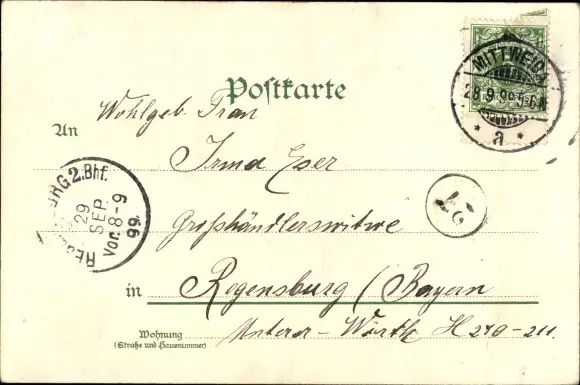 Postkarte
MITTWEIDA
28.9.99 5-6 N
* a *
Wohlgeb. Frau
An
Irma Eser
REGENSBURG 2. Bhf.
29
SEP.
Vor. 8-9
99.
Großhändlerswitwe
in Regensburg / Bayern
Wohnung
(Straße und Hausnummer)
Unterer-Wörth H